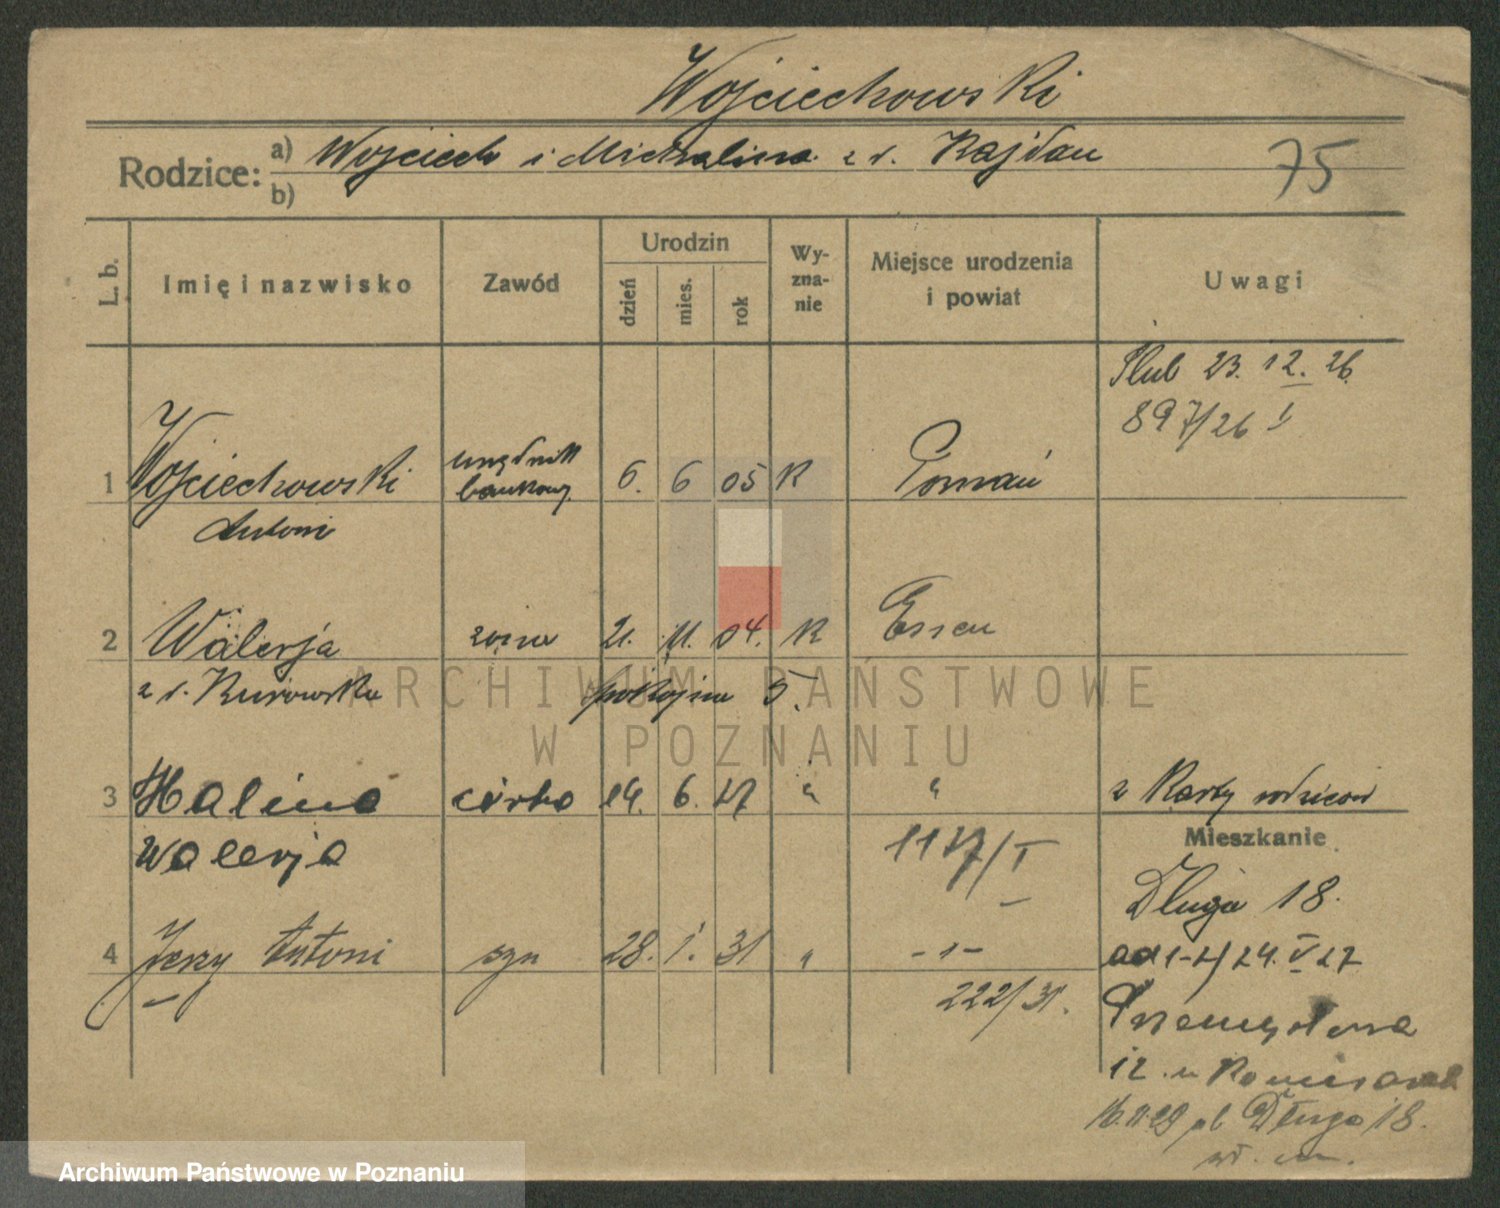 Wojciechowski
Rodzice: a) Wojciech i Michalina z d. Rajdau
b)
75
L. b.
Imię i nazwisko
Zawód
Urodzin
dzień
mies.
rok
Wy-
zna-
nie
Miejsce urodzenia
i powiat
Uwagi
Ślub 23. 12. 26.
897/26 I
1 Wojciechowski urzędnik bankowy 6. 6 05 R Poznań
Antoni
2 Walerja żona 21. 11. 04. R Essen
z d. Kurowska
3 Halina córka 14. 6. 27 " " z Karty rodziców
Walerja
1127/I
Mieszkanie
Długa 18.
4 Jerzy Antoni syn 28. 1. 31 " -"-
222/31.
ad 1-2/24. V 27
Przemysłowa
12. u
16.11.29 pl Długa 18.
ARCHIWUM PAŃSTWOWE
W POZNANIU
Archiwum Państwowe w Poznaniu